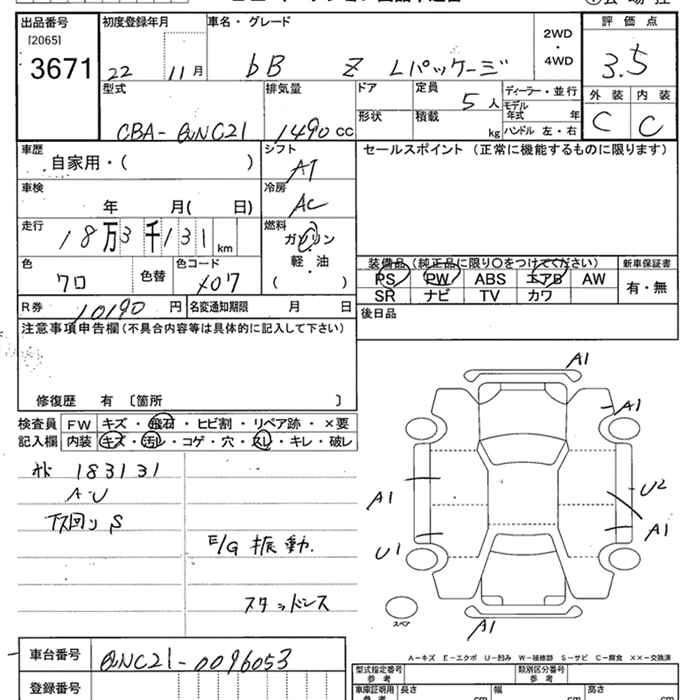 出品番号 初度登録年月 車名・グレード 2WD・4WD 評価点
[2065]
3671 22 11月 bB Z Lパッケージ 3.5
型式 排気量 ドア 定員 5人 ディーラー・並行 外装 内装
モデル年式 年
CBA-QNC21 1490cc 形状 積載 kg ハンドル 左・右 C C
車歴 シフト セールスポイント (正常に機能するものに限ります)
自家用・( ) AT
車検 冷房
年 月( 日) AC
走行 燃料
18万3千131km ガソリン
軽・油
( )
色 色替 色コード 装備品 (純正品に限り○をつけてください) 新車保証書
クロ X07 PS PW ABS エアB AW 有・無
SR ナビ TV カワ
R券 10190円 名変通知期限 月 日 後日品
注意事項申告欄(不具合内容等は具体的に記入して下さい)
修復歴 有 〔箇所 〕
検査員 FW キズ・飛石・ヒビ割・リペア跡・×要
記入欄 内装 キズ・汚レ・コゲ・穴・スレ・キレ・破レ
183131
A・U
下回りS
E/G振動.
スタッドレス
A1
A1
A1
U2
A1
U1
スペア
A1
A-キズ E-エクボ U-凹み W-補修跡 S-サビ C-腐食 ××-交換済
車台番号 QNC21-0096053
型式指定番号 参考 類別区分番号 参考
登録番号 車庫証明用 参考 長さ cm 幅 cm 高さ cm